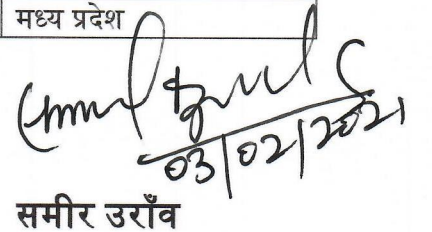 मध्य प्रदेश
03/02/2021
समीर उराँव